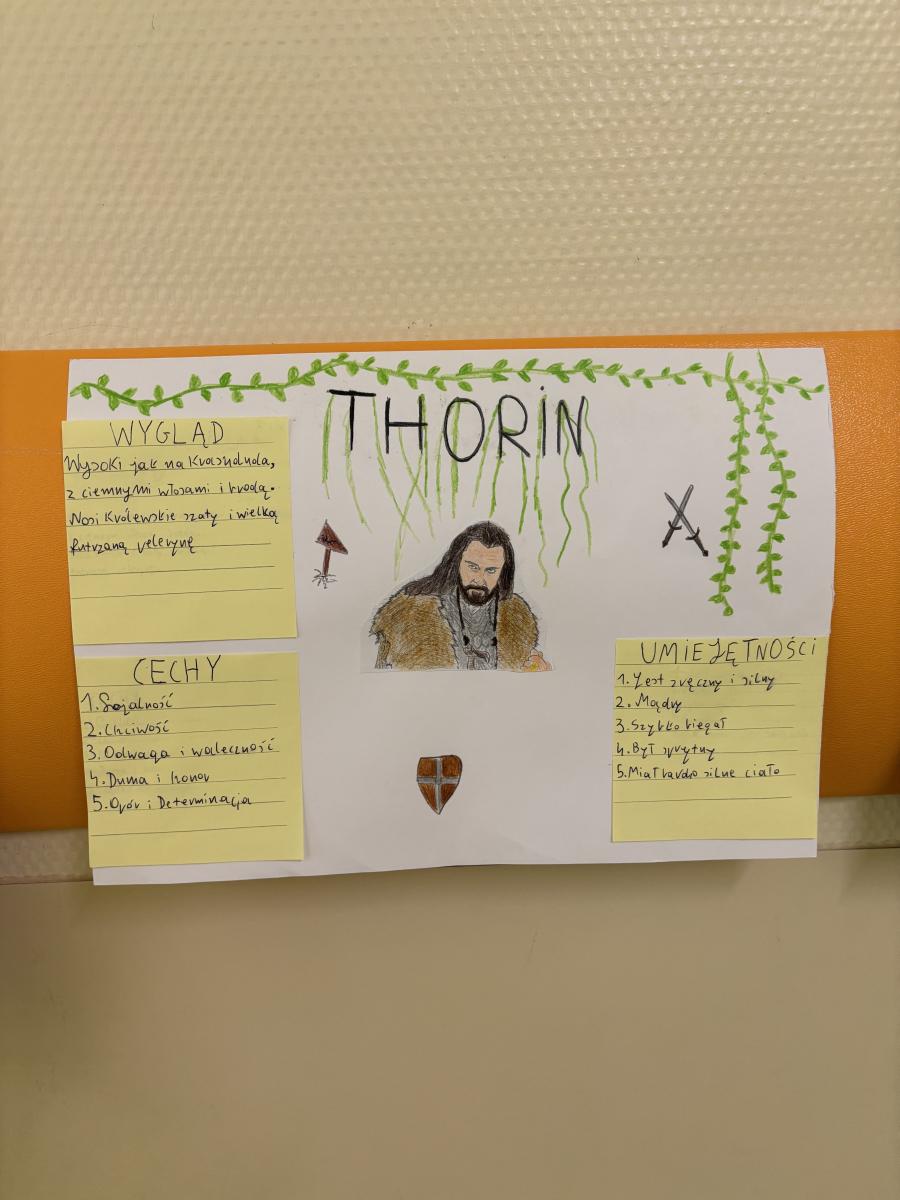 THORIN
WYGLĄD
Wysoki jak na Krasnoluda,
z ciemnymi włosami i brodą.
Nosi Królewskie szaty i wielką
futrzaną pelerynę
CECHY
1. Lojalność
2. Chciwość
3. Odwaga i waleczność
4. Duma i honor
5. Opór i Determinacja
UMIEJĘTNOŚCI
1. Jest zręczny i silny
2. Mądry
3. Szybko biegał
4. Był sprytny
5. Miał bardzo silne ciało